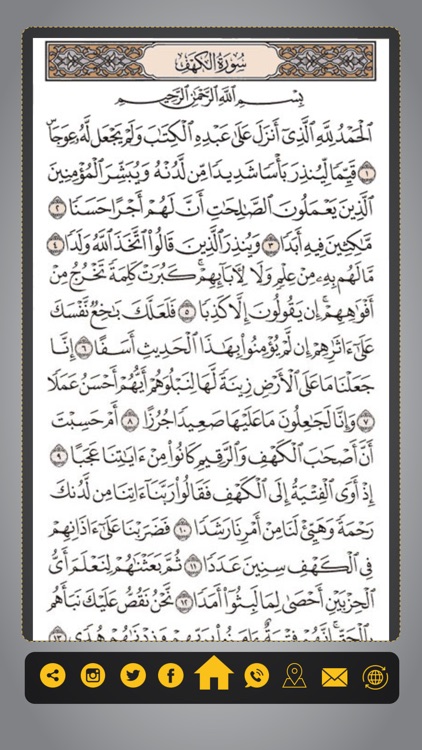 سُورَةُ الكَهْفِ
بِسْمِ اللَّهِ الرَّحْمَٰنِ الرَّحِيمِ
الْحَمْدُ لِلَّهِ الَّذِي أَنزَلَ عَلَىٰ عَبْدِهِ الْكِتَٰبَ وَلَمْ يَجْعَل لَّهُ عِوَجَاۜ
١ قَيِّمًا لِّيُنذِرَ بَأْسًا شَدِيدًا مِّن لَّدُنْهُ وَيُبَشِّرَ الْمُؤْمِنِينَ
الَّذِينَ يَعْمَلُونَ الصَّٰلِحَٰتِ أَنَّ لَهُمْ أَجْرًا حَسَنًا ٢
مَّٰكِثِينَ فِيهِ أَبَدًا ٣ وَيُنذِرَ الَّذِينَ قَالُوا۟ اتَّخَذَ اللَّهُ وَلَدًا ٤
مَّا لَهُم بِهِۦ مِنْ عِلْمٍ وَلَا لِءَابَآئِهِمْ ۚ كَبُرَتْ كَلِمَةً تَخْرُجُ مِنْ
أَفْوَٰهِهِمْ ۚ إِن يَقُولُونَ إِلَّا كَذِبًا ٥ فَلَعَلَّكَ بَٰخِعٌ نَّفْسَكَ
عَلَىٰٓ ءَاثَٰرِهِمْ إِن لَّمْ يُؤْمِنُوا۟ بِهَٰذَا الْحَدِيثِ أَسَفًا ٦ إِنَّا
جَعَلْنَا مَا عَلَى الْأَرْضِ زِينَةً لَّهَا لِنَبْلُوَهُمْ أَيُّهُمْ أَحْسَنُ عَمَلًا
٧ وَإِنَّا لَجَٰعِلُونَ مَا عَلَيْهَا صَعِيدًا جُرُزًا ٨ أَمْ حَسِبْتَ
أَنَّ أَصْحَٰبَ الْكَهْفِ وَالرَّقِيمِ كَانُوا۟ مِنْ ءَايَٰتِنَا عَجَبًا ٩
إِذْ أَوَى الْفِتْيَةُ إِلَى الْكَهْفِ فَقَالُوا۟ رَبَّنَآ ءَاتِنَا مِن لَّدُنكَ
رَحْمَةً وَهَيِّئْ لَنَا مِنْ أَمْرِنَا رَشَدًا ١٠ فَضَرَبْنَا عَلَىٰٓ ءَاذَانِهِمْ
فِي الْكَهْفِ سِنِينَ عَدَدًا ١١ ثُمَّ بَعَثْنَٰهُمْ لِنَعْلَمَ أَيُّ
الْحِزْبَيْنِ أَحْصَىٰ لِمَا لَبِثُوٓا۟ أَمَدًا ١٢ نَّحْنُ نَقُصُّ عَلَيْكَ نَبَأَهُم
بِالْحَقِّ ۚ إِنَّهُمْ فِتْيَةٌ ءَامَنُوا۟ بِرَبِّهِمْ وَزِدْنَٰهُمْ هُدًى ١٣